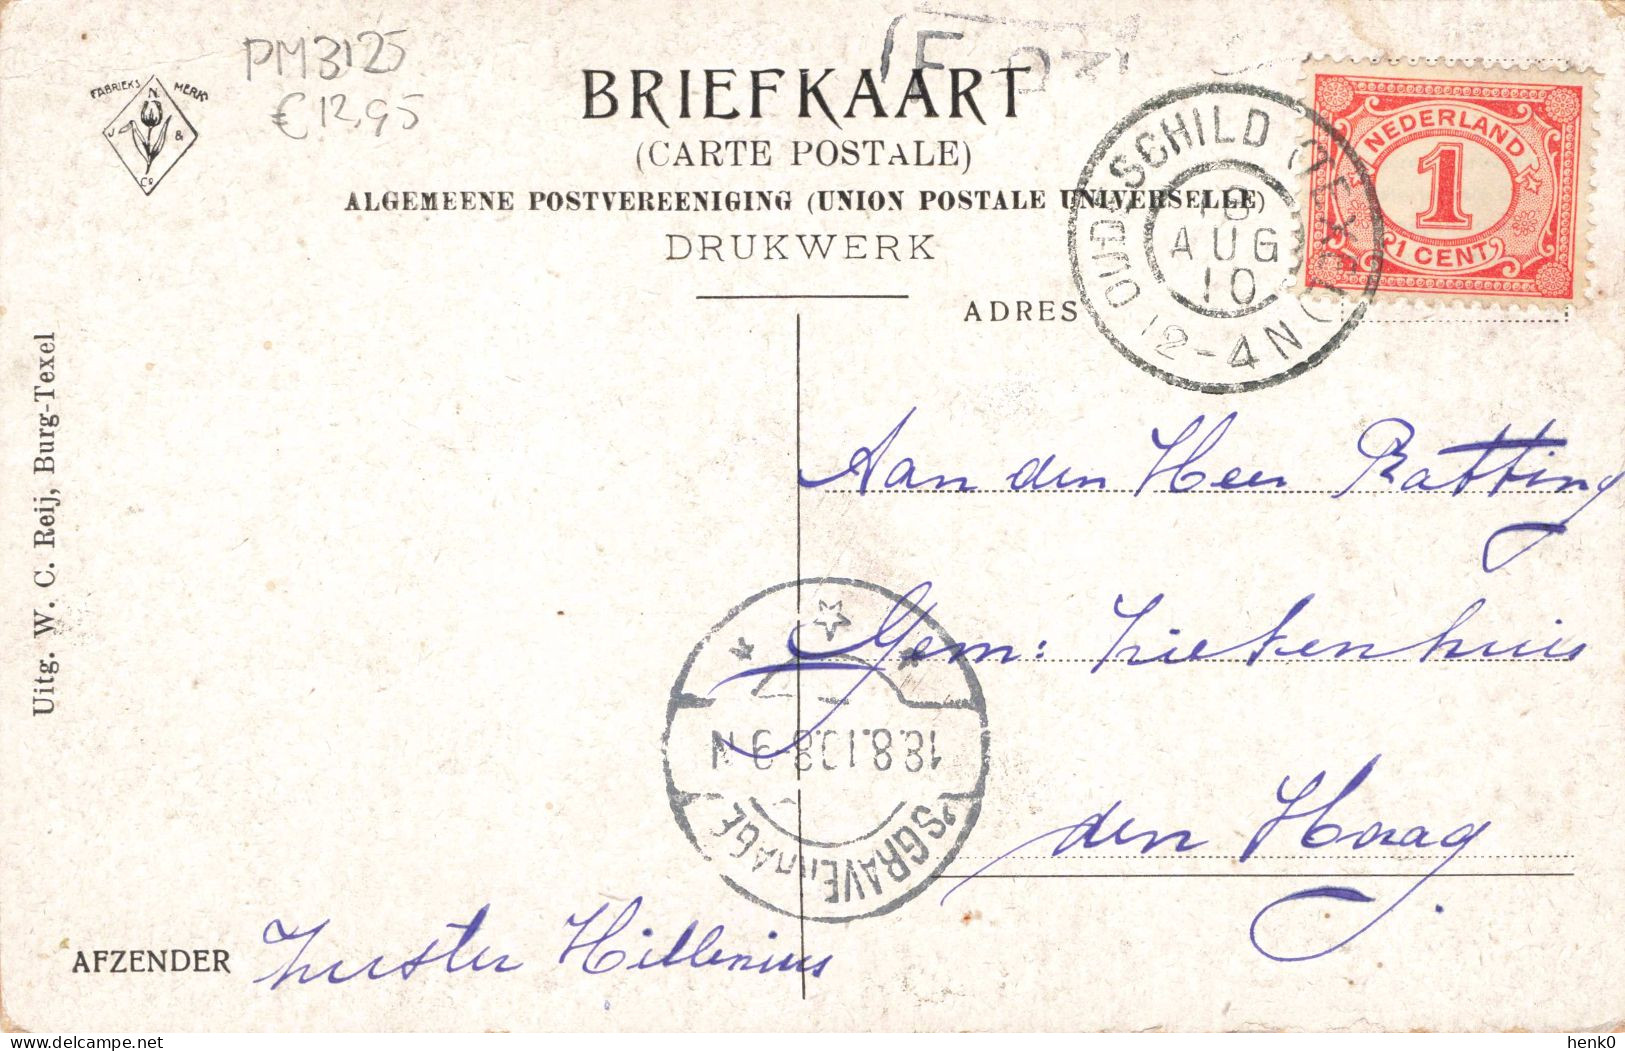 PM3125
€12,95
FABRIEKS MERK
N.
J &
Co
BRIEFKAART
(CARTE POSTALE)
ALGEMEENE POSTVEREENIGING (UNION POSTALE UNIVERSELLE)
DRUKWERK
OUDESCHILD (TEXEL)
18
AUG
10
12-4N
NEDERLAND
1
1 CENT
ADRES
Aan den Heer Ratting
Gem: Ziekenhuis
den Haag
18.8.10.8-9 N
'SGRAVENHAGE
Uitg. W. C. Reij, Burg-Texel
AFZENDER Zuster Hillenius
henk0